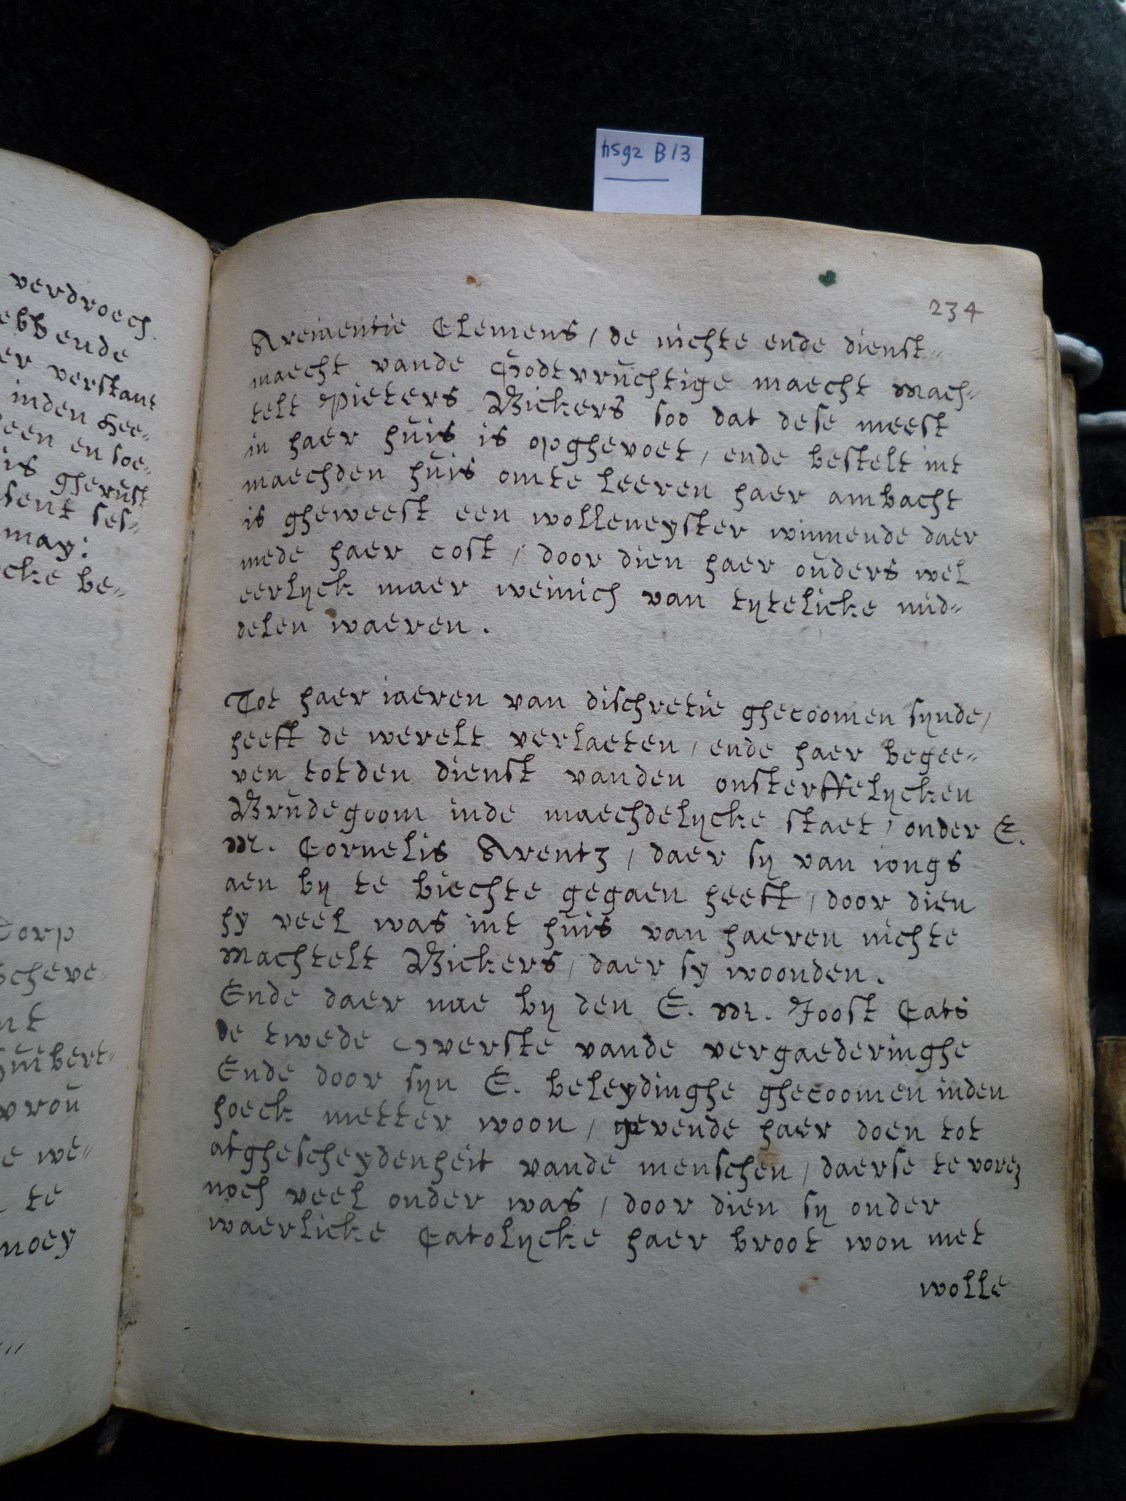 hsg2 B13
verdroech.
ebbende
er verstant
inden Hee-
een ensoe-
is gherust
sent ses-
may:
cke be-
dorp
scheve-
nt
huibert-
vroŭ
e we-
te
moey
234
Aremientie Clemens, de nichte ende dienst-
maecht vande Godtvrŭchtige maecht Mach-
telt Pieters Bickers soo dat dese meest
in haer hŭis is opghevoet, ende bestelt int
maechden hŭis omte leeren haer ambacht
is gheweest een wolleneyster winnende daer
mede haer cost, door dien haer oŭders wel
eerlyck maer weinich van tytelicke mid-
delen waeren.
Tot haer iaeren van dischretie ghecoomen synde,
heeft de werelt verlaeten, ende haer begee-
ven totden dienst vanden onsterffelycken
Brŭdegoom inde maechdelycke staet, onder E.
M. Cornelis Arentz, daer sy van iongs
aen by te biechte gegaen heeft, door dien
hy veel was int hŭis van haeren nichte
Machtelt Bickers, daer sy woonden.
Ende daer nae by den E. M. Joost Cats
de twede overste vande vergaederinghe
Ende door syn E. beleydinghe ghecoomen inden
hoeck metter woon, gevende haer doen tot
afghescheydenheit vande menschen, daerse te vorē
noch veel onder was, door dien sy onder
waerlicke Catolycke haer broot won met
wolle